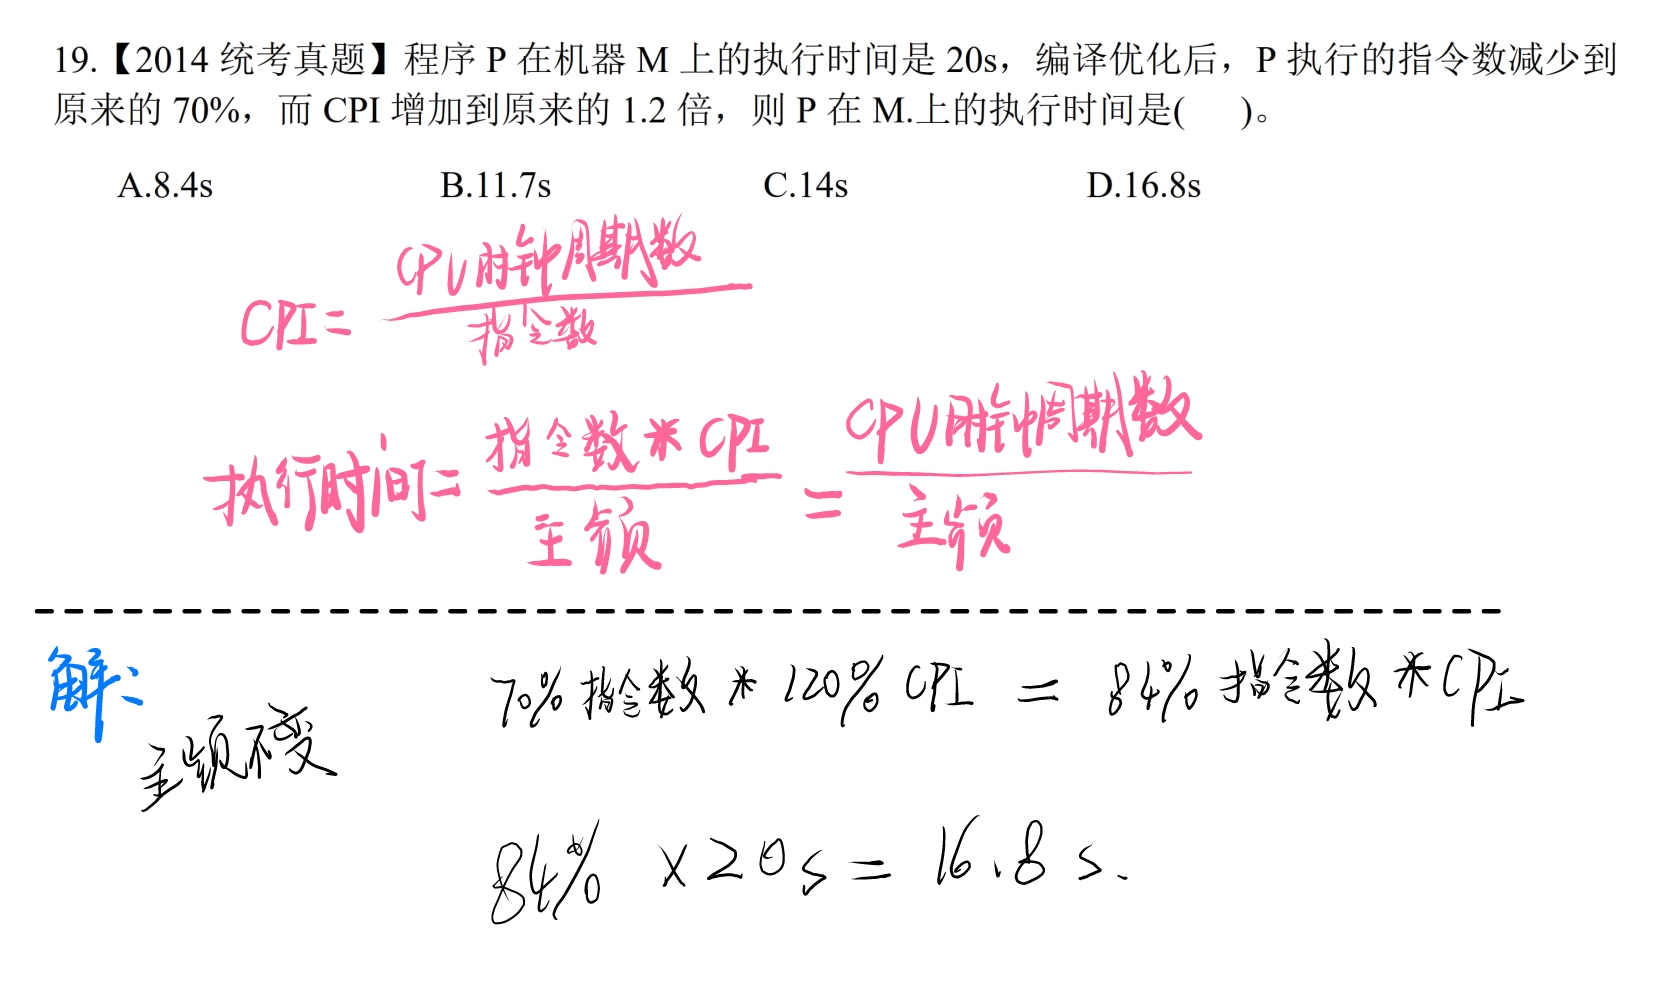 19.【2014 统考真题】程序 P 在机器 M 上的执行时间是 20s，编译优化后，P 执行的指令数减少到
原来的 70%，而 CPI 增加到原来的 1.2 倍，则 P 在 M.上的执行时间是(    )。
A.8.4s B.11.7s C.14s D.16.8s
CPU时钟周期数
CPI=
指令数
指令数*CPI CPU时钟周期数
执行时间= =
主频 主频
解:
70%指令数 * 120% CPI = 84% 指令数*CPI
主频不变
84% ×20s= 16.8 s.